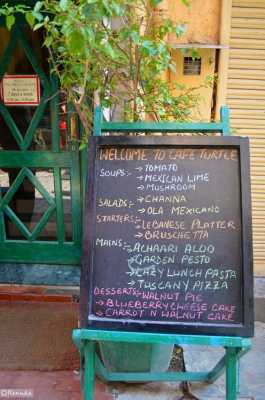 WELCOME TO CAFE TURTLE
SOUPS:- → TOMATO
→ MEXICAN LIME
→ MUSHROOM
SALADS:- → CHANNA
→ OLA MEXICANO
STARTERS:- → LEBANESE PLATTER
→ BRUSCHETTA
MAINS:- → ACHAARI ALOO
→ GARDEN PESTO
→ LAZY LUNCH PASTA
→ TUSCANY PIZZA
DESSERTS:- → WALNUT PIE
→ BLUEBERRY CHEESE CAKE
→ CARROT N WALNUT CAKE